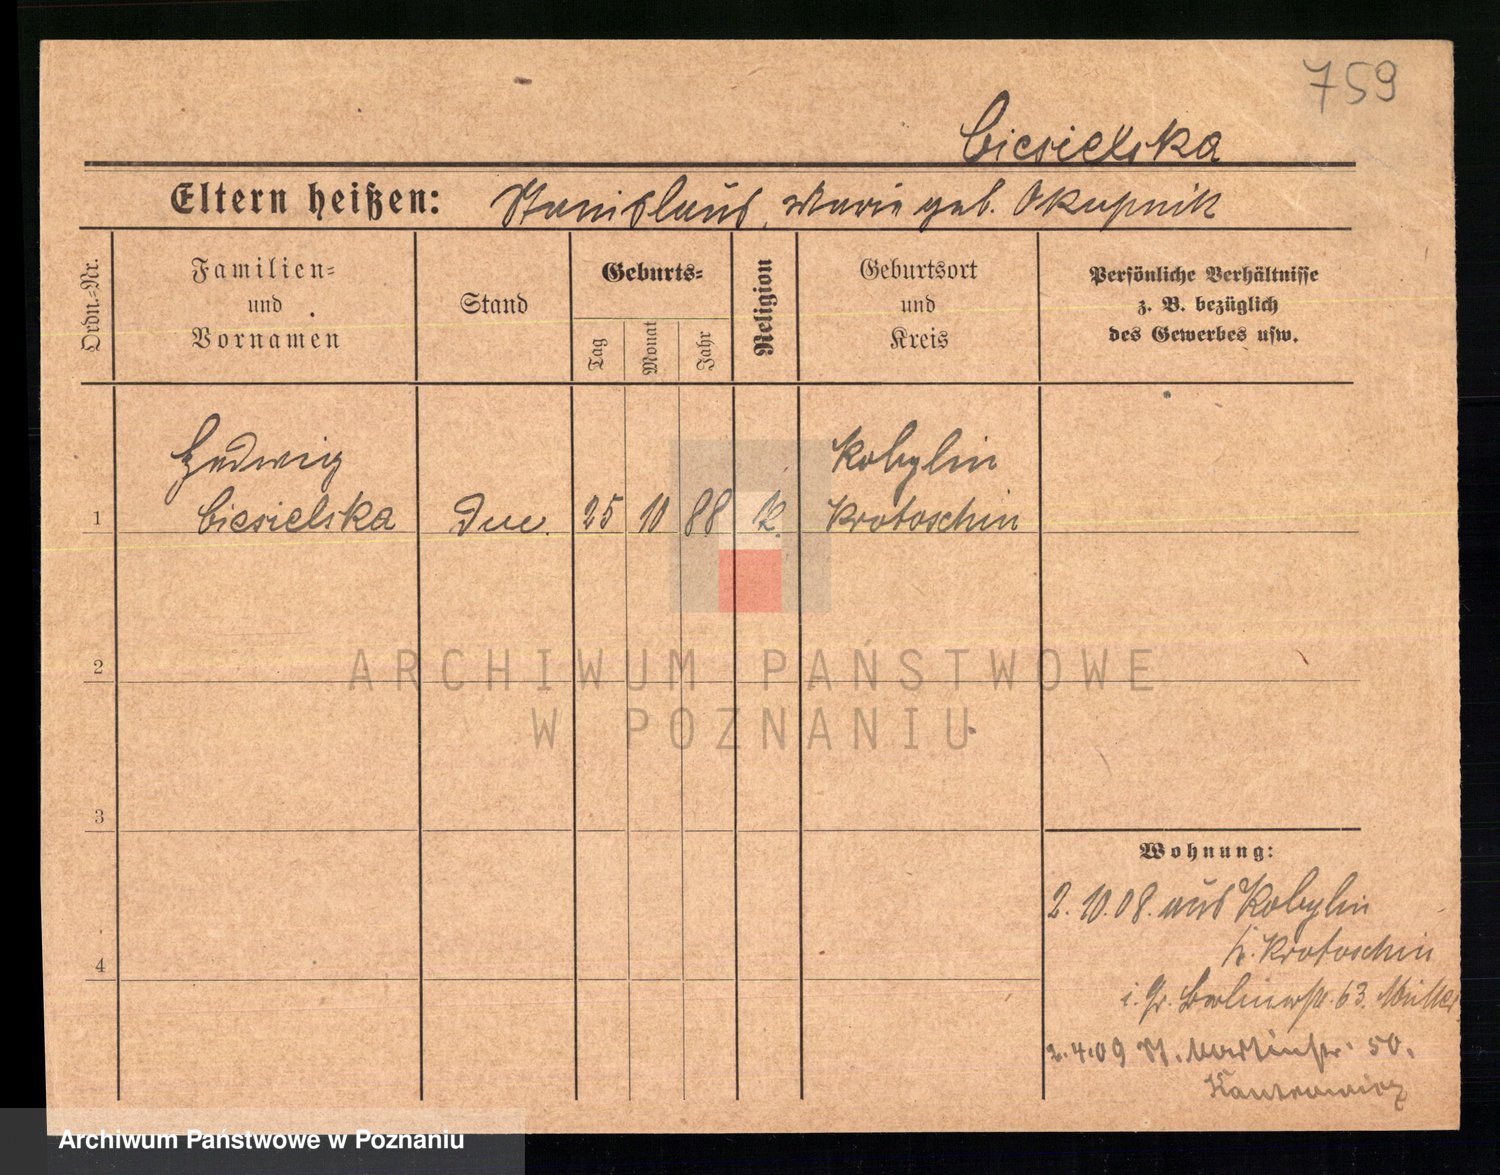 759
Ciesielska
Eltern heißen: Stanislaus, Marie geb. Okupnik
Ordn.=Nr.
Familien=
und
Vornamen
Stand
Geburts=
Tag
Monat
Jahr
Religion
Geburtsort
und
Kreis
Persönliche Verhältnisse
z. B. bezüglich
des Gewerbes usw.
Hedwig
Kobylin
1 Ciesielska 25 10 88 K. Krotoschin
2
3
4
Wohnung:
2.10.08. aus Kobylin
Kr. Krotoschin
63.
2.4.09 St. Martinstr. 50.
Kantrowicz
ARCHIWUM PAŃSTWOWE
W POZNANIU
Archiwum Państwowe w Poznaniu